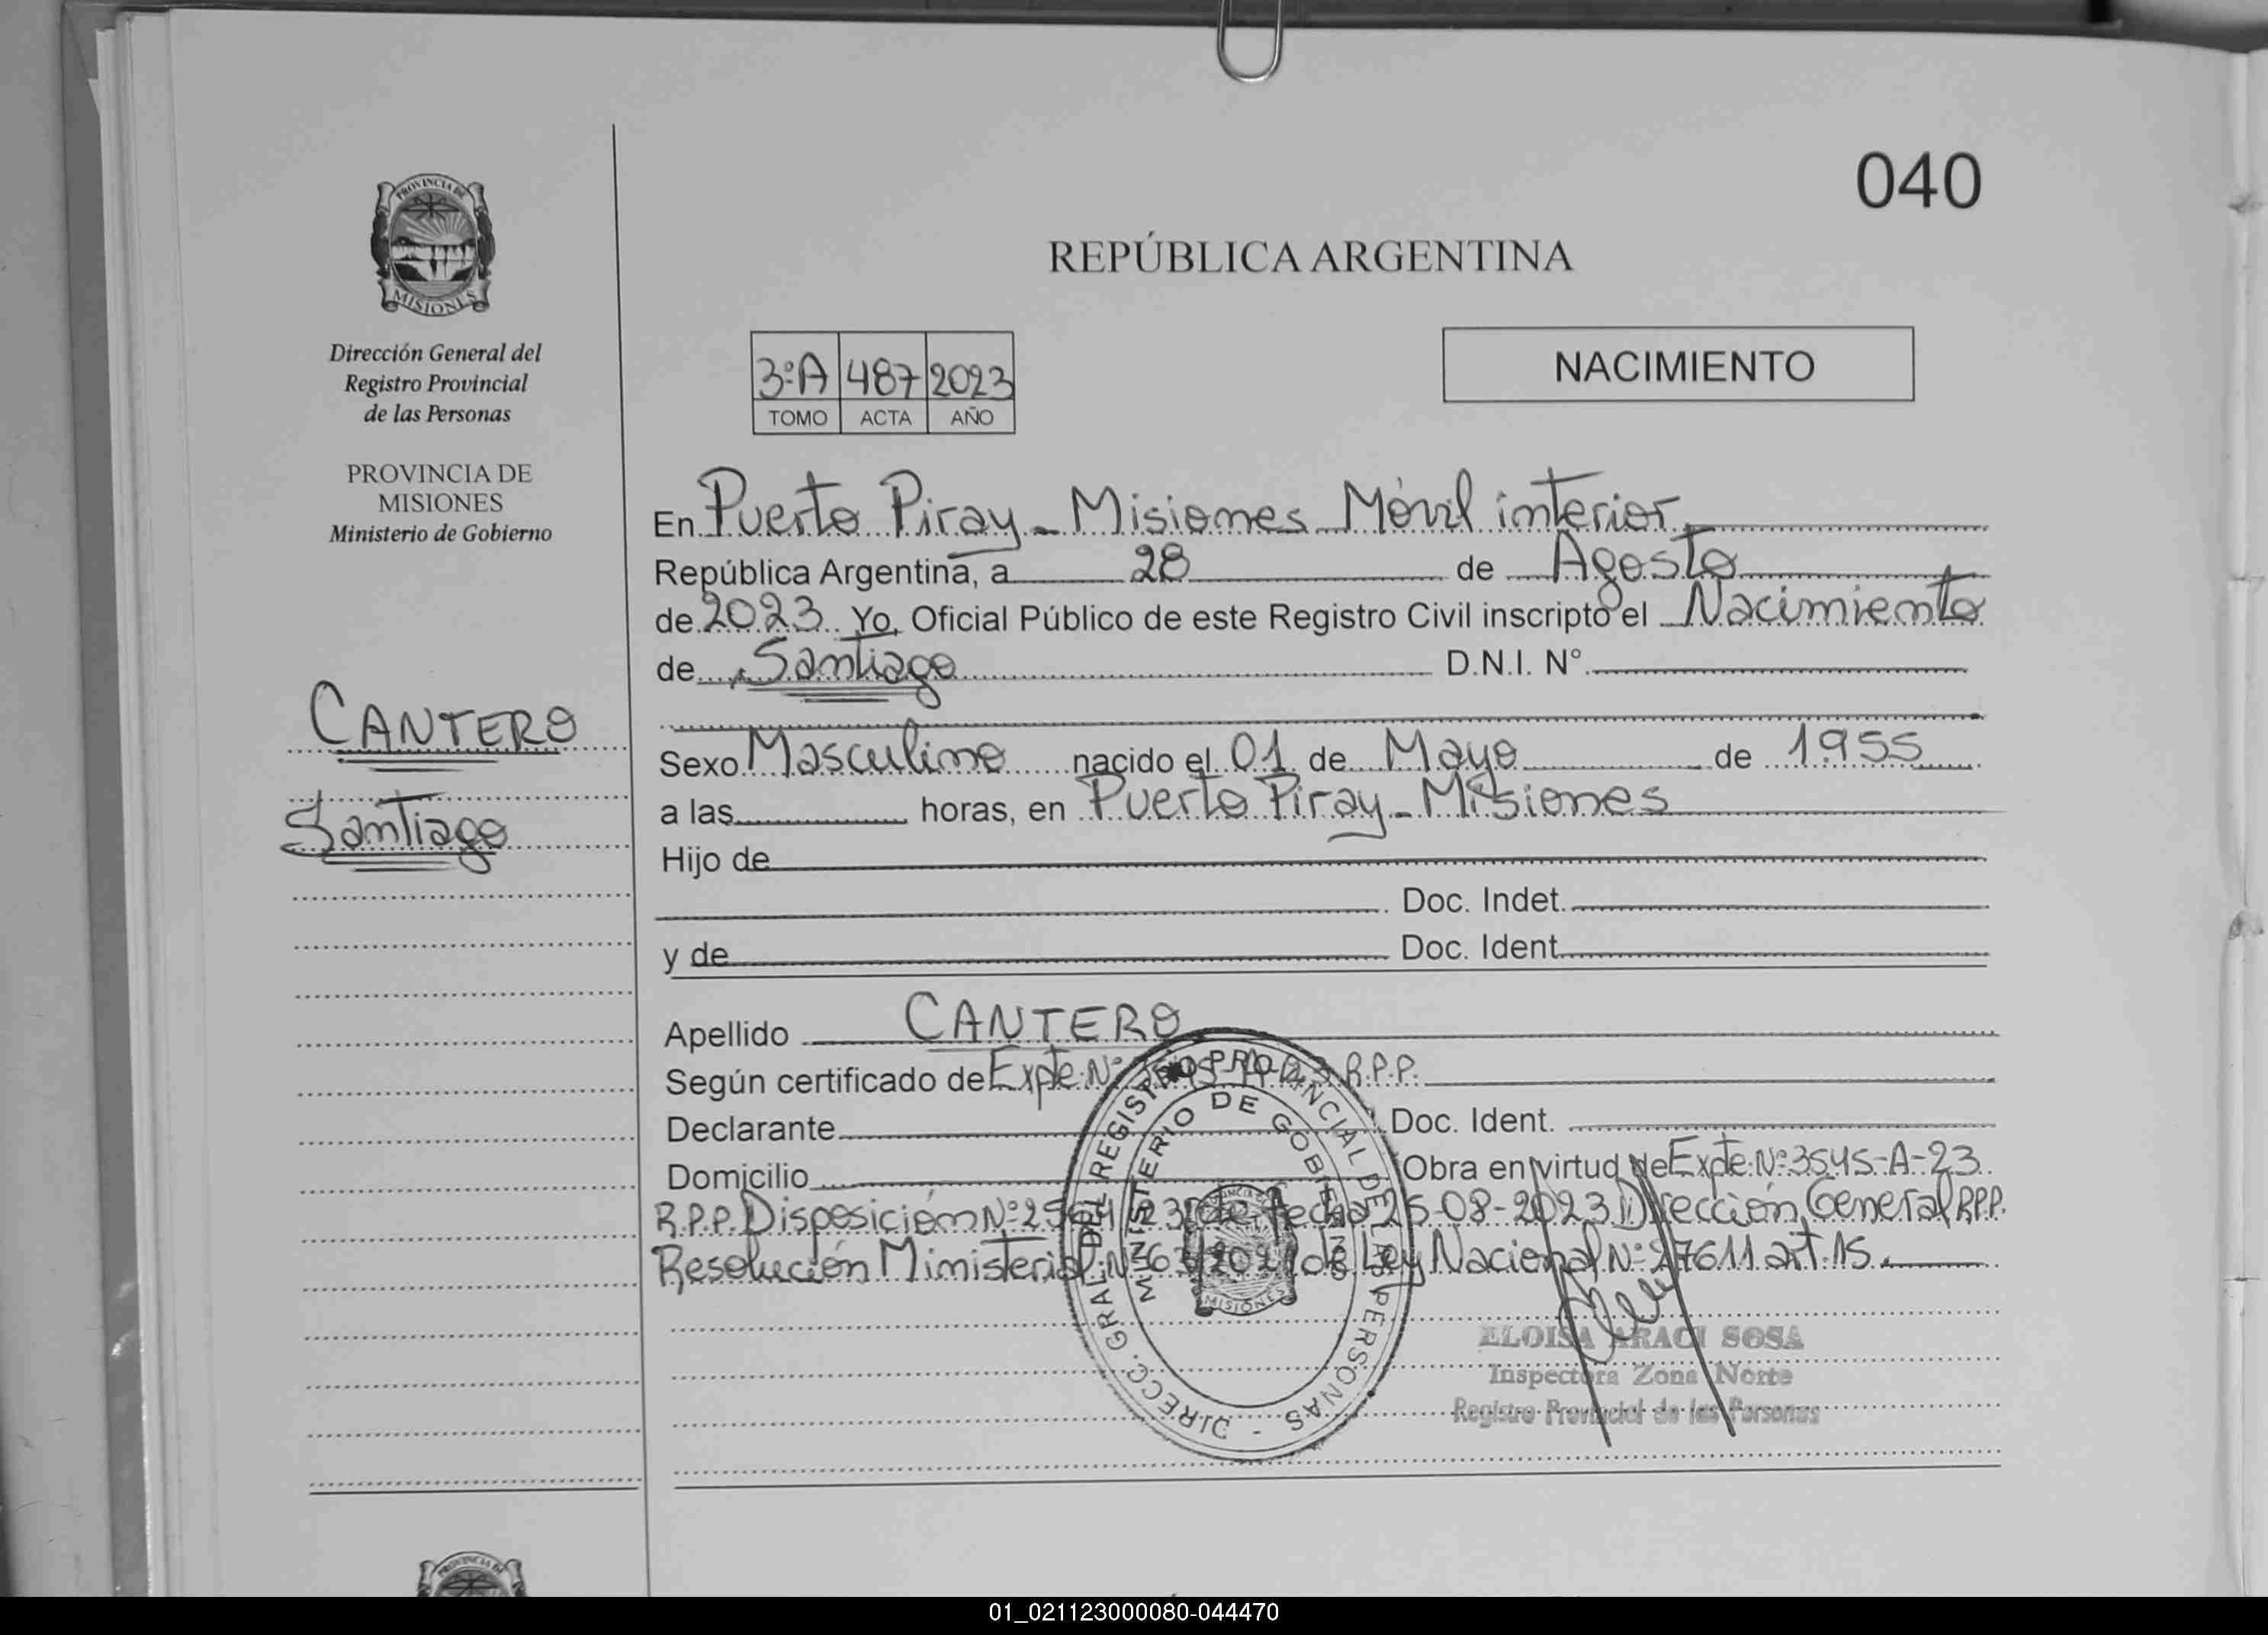 040
PROVINCIA DE
MISIONES
Dirección General del
Registro Provincial
de las Personas
PROVINCIA DE
MISIONES
Ministerio de Gobierno
CANTERO
Santiago
REPÚBLICA ARGENTINA
3ºA 487 2023
TOMO ACTA AÑO
NACIMIENTO
En Puerto Piray - Misiones Móvil interior
República Argentina, a 28 de Agosto
de 2023 Yo, Oficial Público de este Registro Civil inscripto el Nacimiento
de Santiago D.N.I. Nº
Sexo Masculino nacido el 01 de Mayo de 1955
a las horas, en Puerto Piray - Misiones
Hijo de
Doc. Indet.
y de Doc. Ident.
Apellido CANTERO
Según certificado de Expte Nº R.P.P.
Declarante Doc. Ident.
Domicilio Obra en virtud de Expte. Nº 3545-A-23
R.P.P. Disposición Nº de fecha 25-08-2023 Dirección General R.P.P.
Resolución Ministerial Nº de Ley Nacional Nº 27611 art. 15.
DIRECC. GRAL. DEL REGISTRO PROVINCIAL DE LAS PERSONAS -
MINISTERIO DE GOBIERNO
MISIONES
ELOISA ARACI SOSA
Inspectora Zona Norte
Registro Provincial de las Personas
01_021123000080-044470